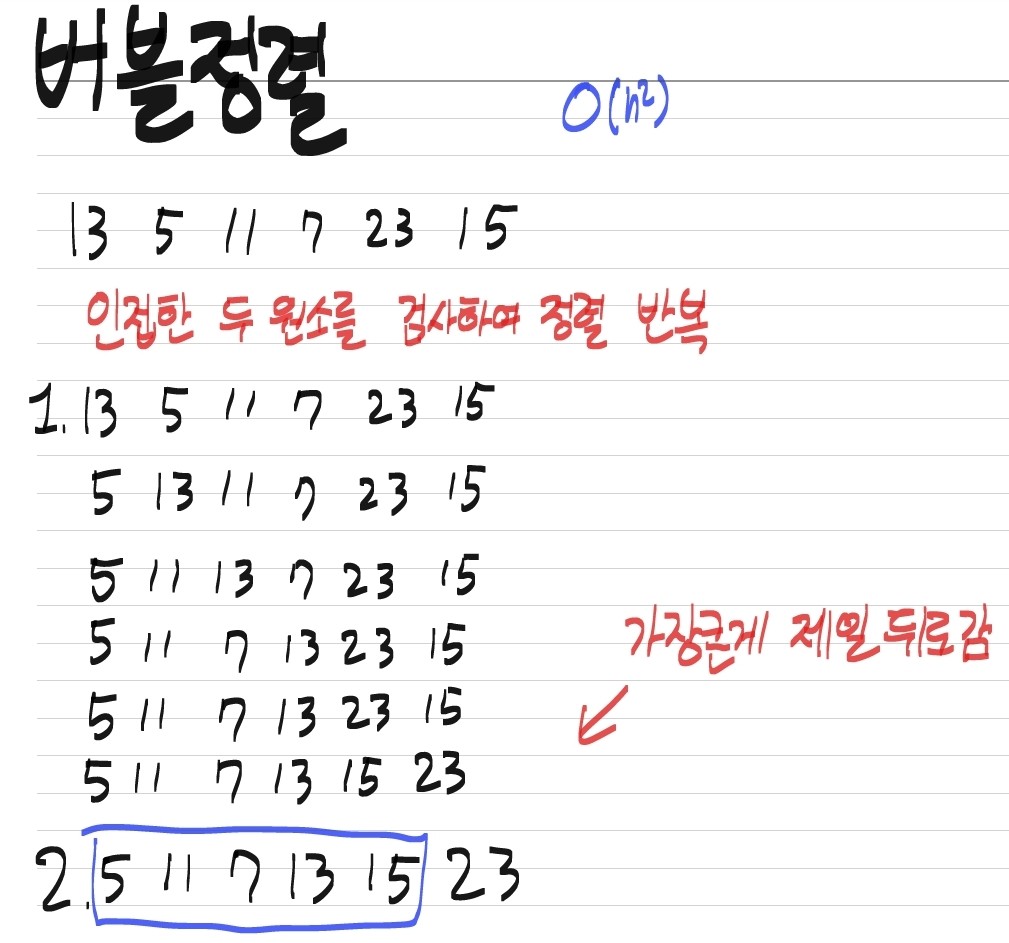 버블정렬
O(n²)
13 5 11 7 23 15
인접한 두 원소를 검사하여 정렬 반복
1. 13 5 11 7 23 15
5 13 11 7 23 15
5 11 13 7 23 15
5 11 7 13 23 15
가장큰게 제일 뒤로감
5 11 7 13 23 15
5 11 7 13 15 23
2. 5 11 7 13 15 23